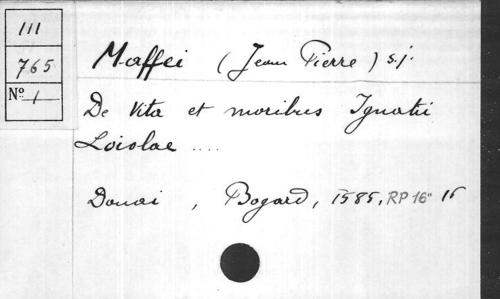 III
765
Nº 1
Maffei (Jean Pierre) s.j.
De Vita et moribus Ignatii
Loiolae ....
Douai, Bogard, 1585, RP 16° 16